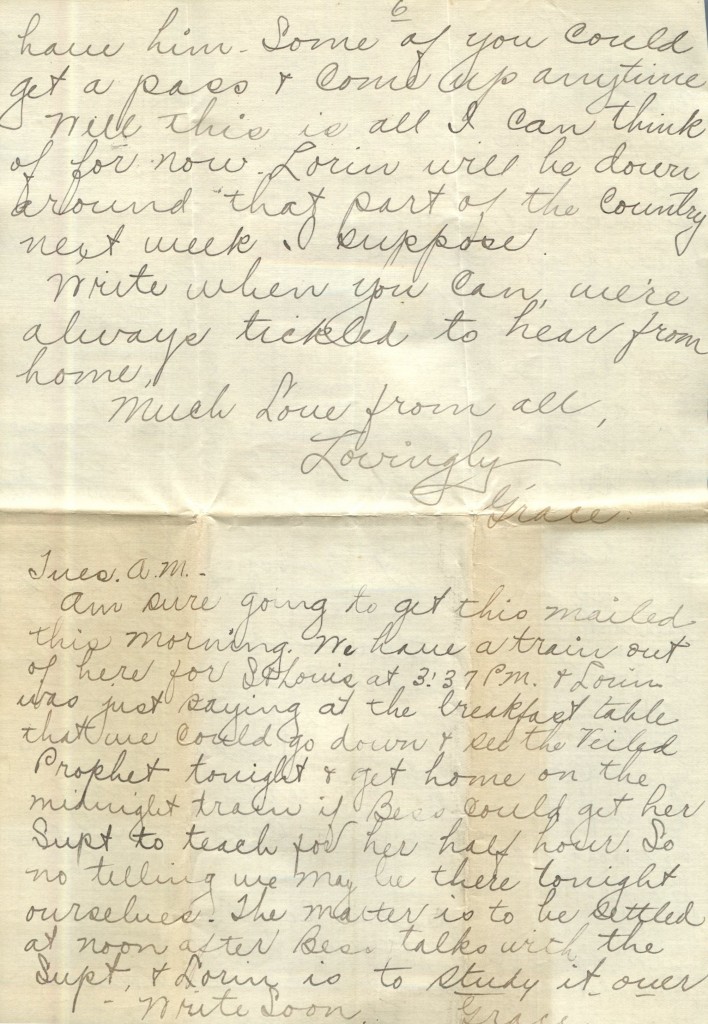 6
have him. Some of you could
get a pass & come up anytime
Well this is all I can think
of for now. Lorin will be down
around that part of the country
next week I suppose.
Write when you can, we're
always tickled to hear from
home,
Much Love from all,
Lovingly
Grace.
Tues. A.M. -
Am sure going to get this mailed
this morning. We have a train out
of here for St Louis at 3:37 P.M. & Lorin
was just saying at the breakfast table
that we could go down & see the Veiled
Prophet tonight & get home on the
midnight train if Bess could get her
Supt to teach for her half hour. So
no telling we may be there tonight
ourselves. The matter is to be settled
at noon after Bess talks with the
Supt, & Lorin is to study it over
- Write Soon, Grace